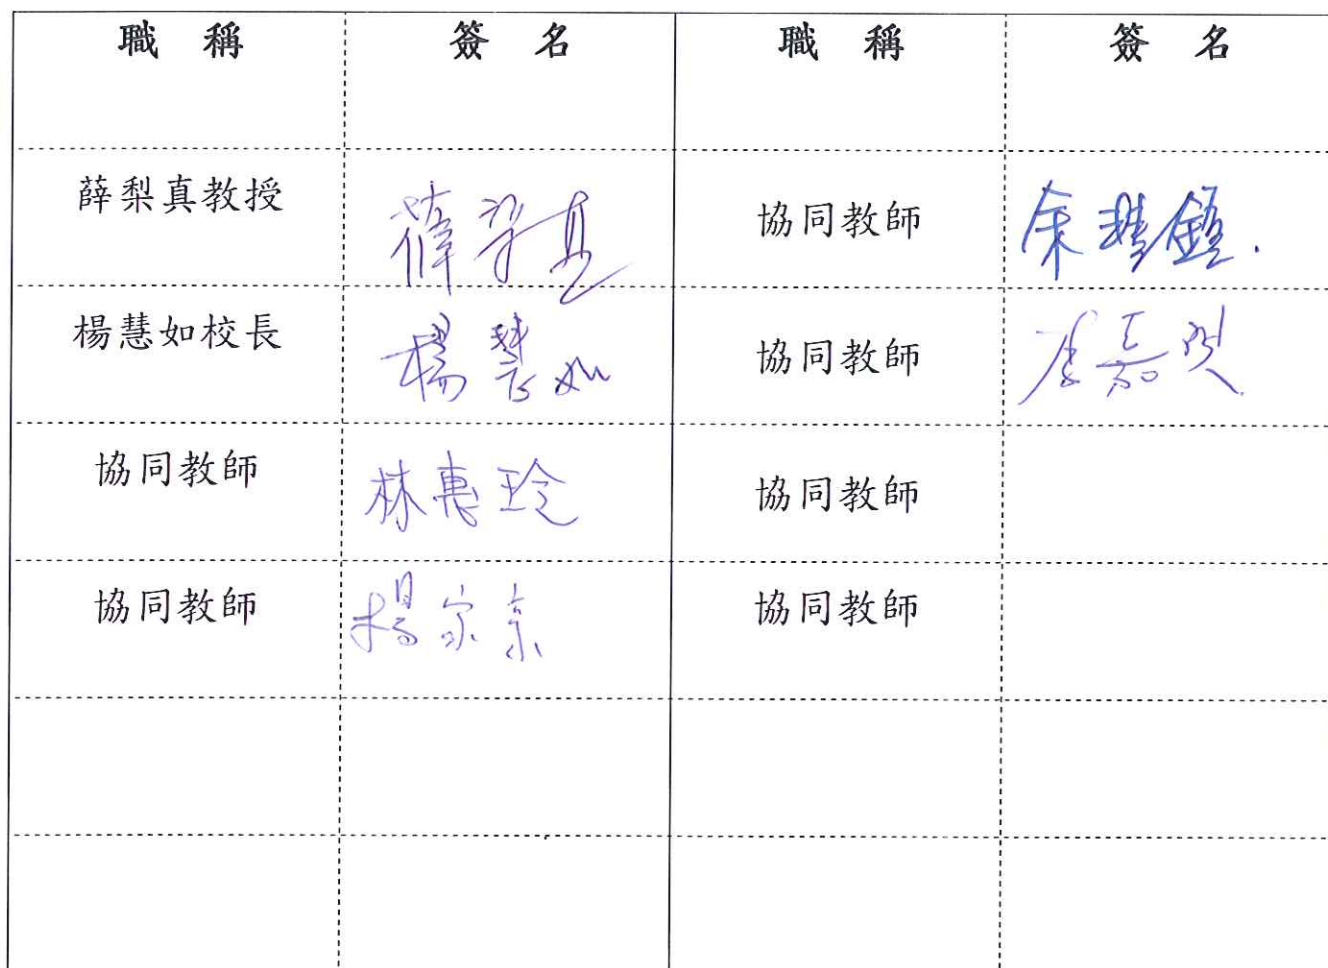 職 稱 簽 名 職 稱 簽 名
薛梨真教授 薛梨真 協同教師
楊慧如校長 楊慧如 協同教師 李嘉
協同教師 林惠玲 協同教師
協同教師 楊宗 協同教師